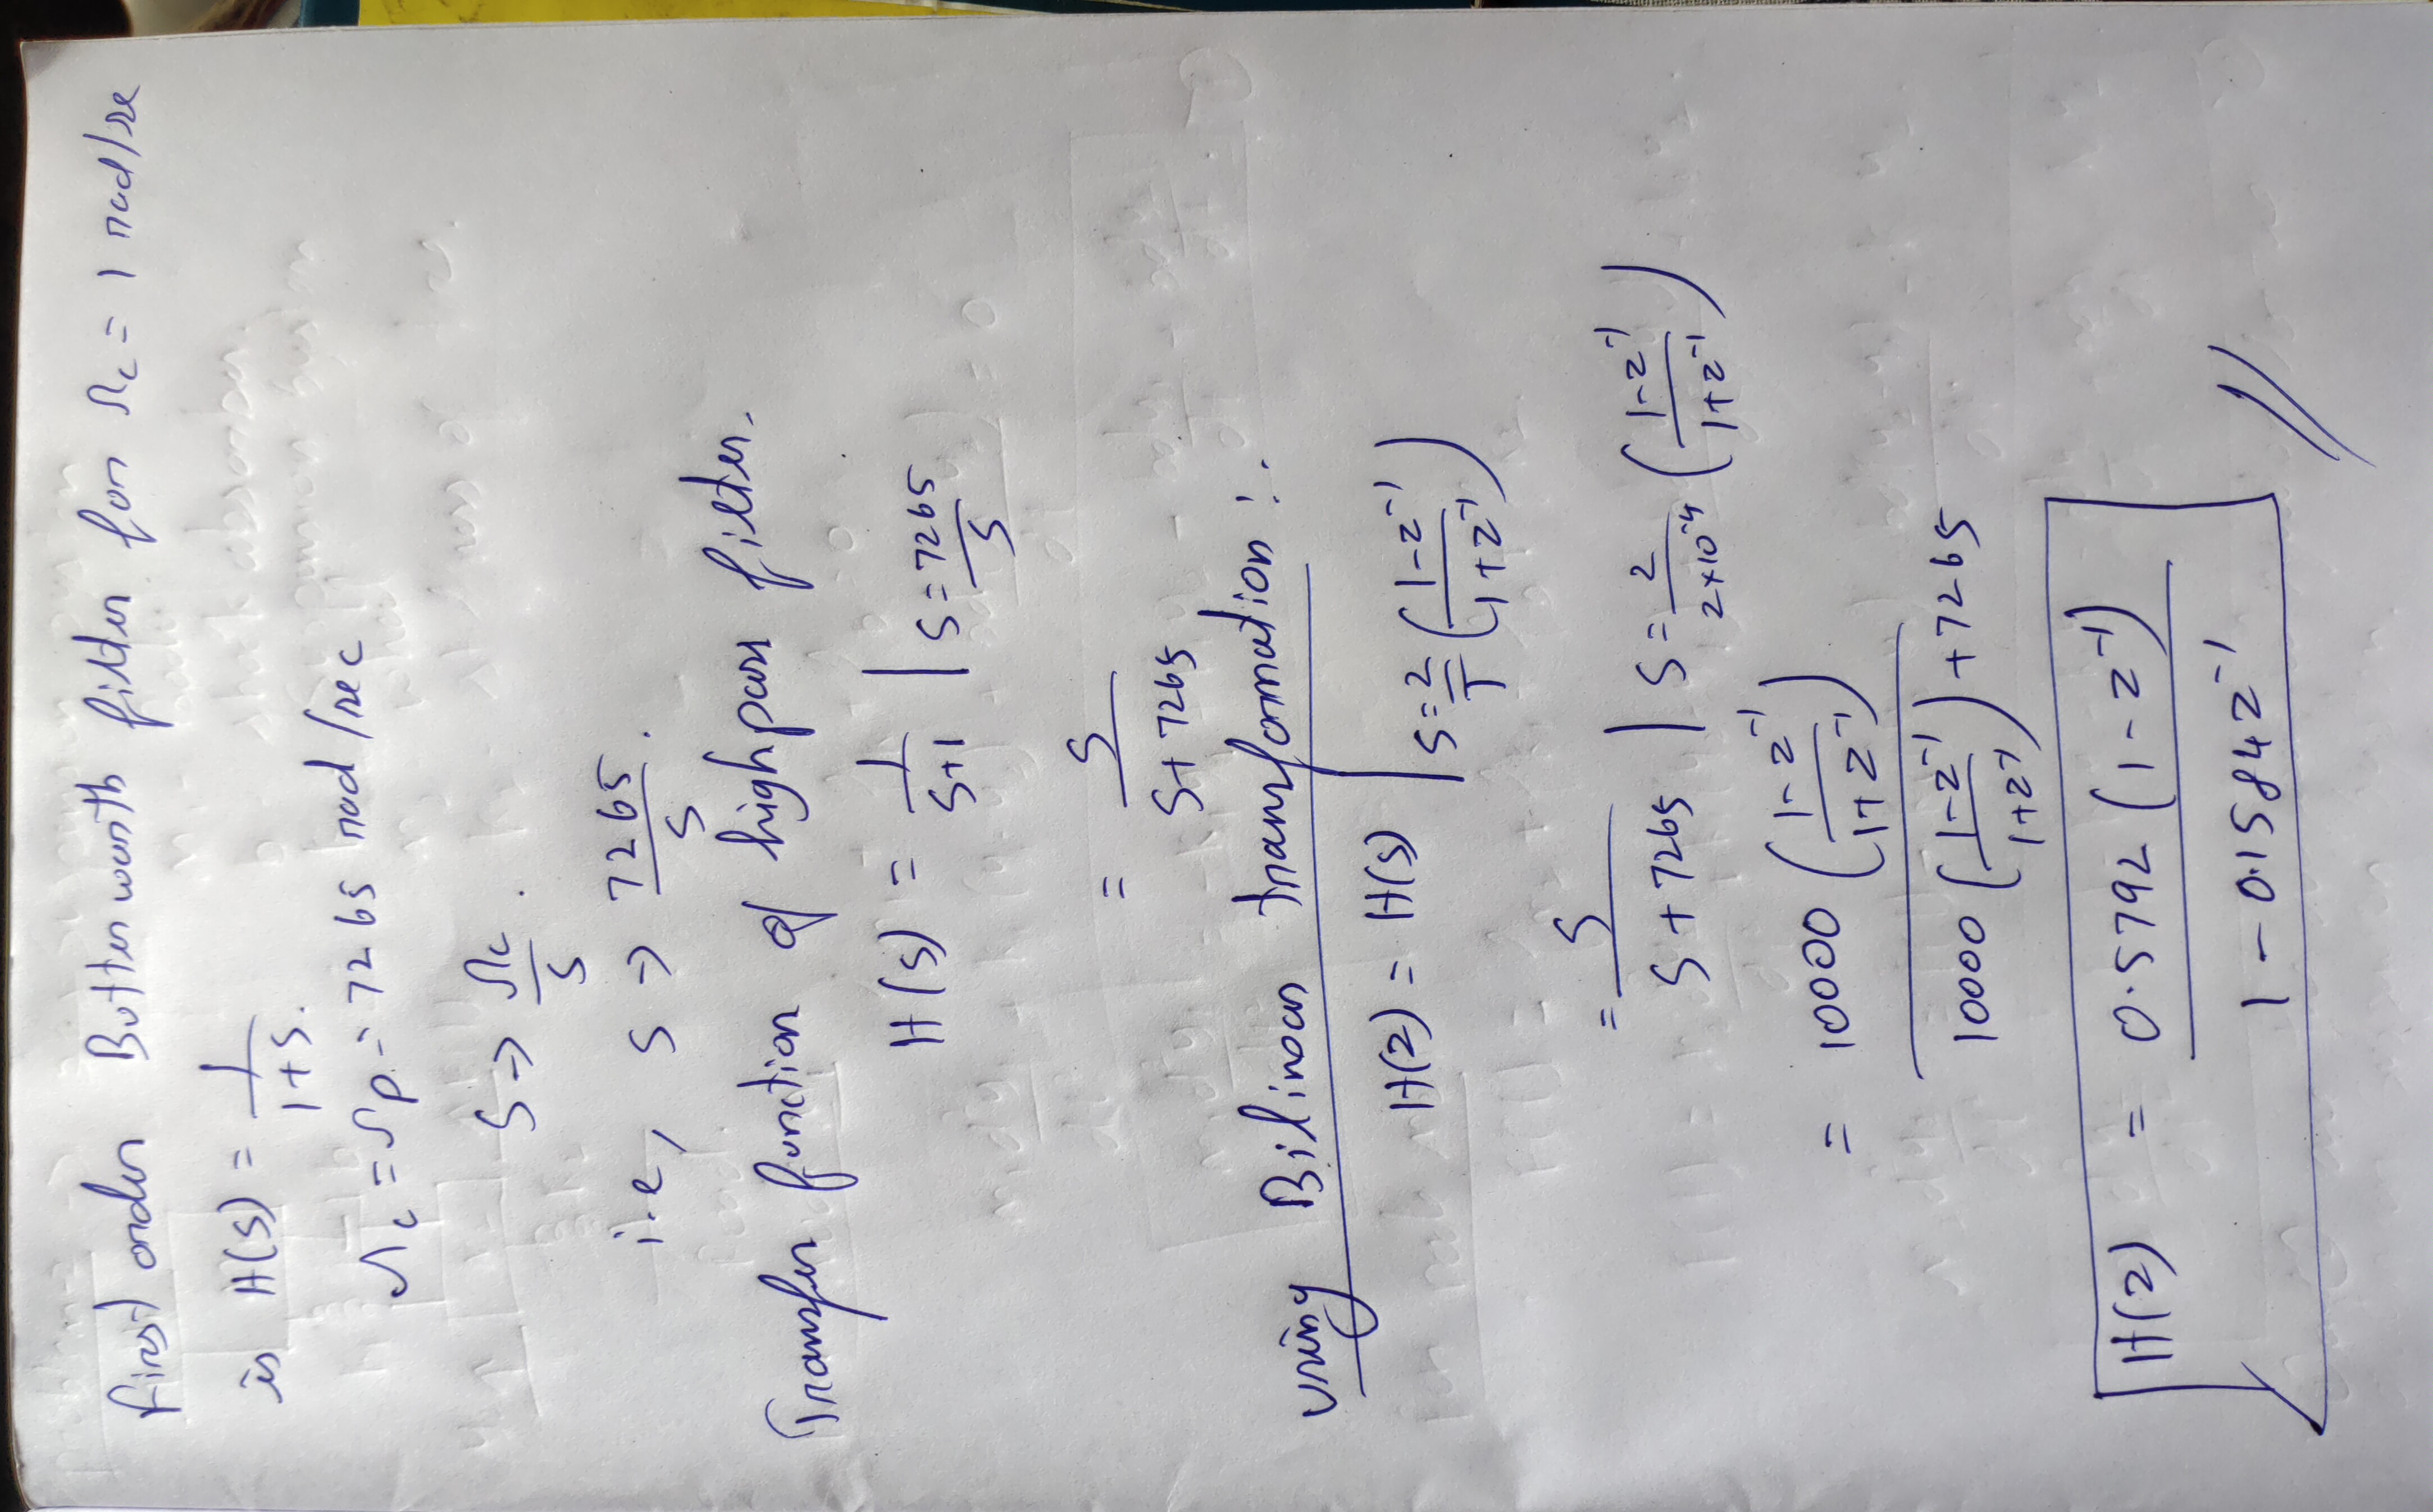 First order Butterworth filter for Ωc = 1 rad/se
is H(s) = 1/(1+s).
Ωc = Ωp = 7265 rad/sec
S → Ωc/S.
i.e, S → 7265/S.
Transfer function of highpass filter.
H(s) = 1/(S+1) | S = 7265/S
= S/(S+7265)
Using Bilinear transformation :-
H(z) = H(s) | S = 2/T ((1-z⁻¹)/(1+z⁻¹))
= S/(S+7265) | S = 2/(2×10⁻⁴) ((1-z⁻¹)/(1+z⁻¹))
= 10000 ((1-z⁻¹)/(1+z⁻¹))
10000 ((1-z⁻¹)/(1+z⁻¹)) + 7265
H(z) = 0.5792 (1-z⁻¹)
1 - 0.1584z⁻¹